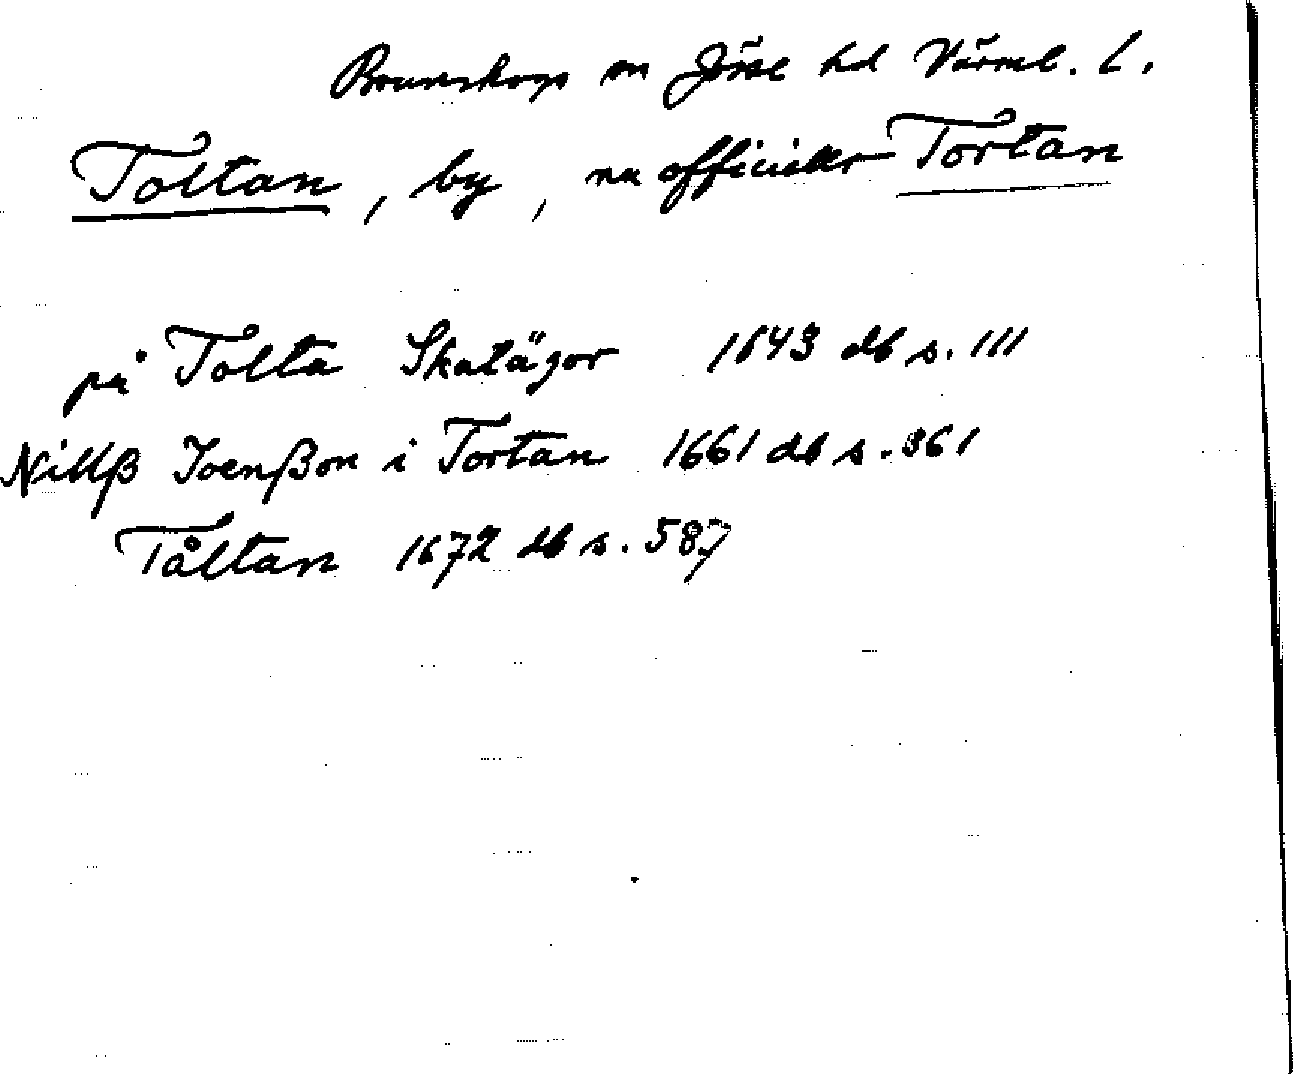 Brunskogs sn Jösse hd Värml. l.
Toltan, by, nu officiellt Tortan
på Tolta Skatägor 1643 db s. 111
Nillß Joenßon i Tortan 1661 db s. 361
Tåltan 1672 db s. 587